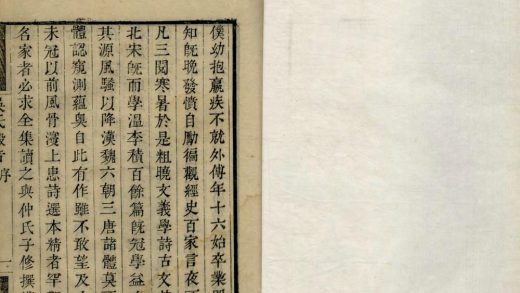 僕幼抱羸疾不就外傅年十六始卒業
知旣晚發憤自勵徧觀經史百家言夜
凡三閱寒暑於是粗曉文義學詩古文
北宋旣而學溫李積百餘篇旣冠學益
其源風騷以降漢魏六朝三唐諸體莫
體認窺測蘊奧自此有作雖不敢望及
未冠以前風骨寖上患詩選本精者罕
名家者必求全集讀之與仲氏子修撰
序